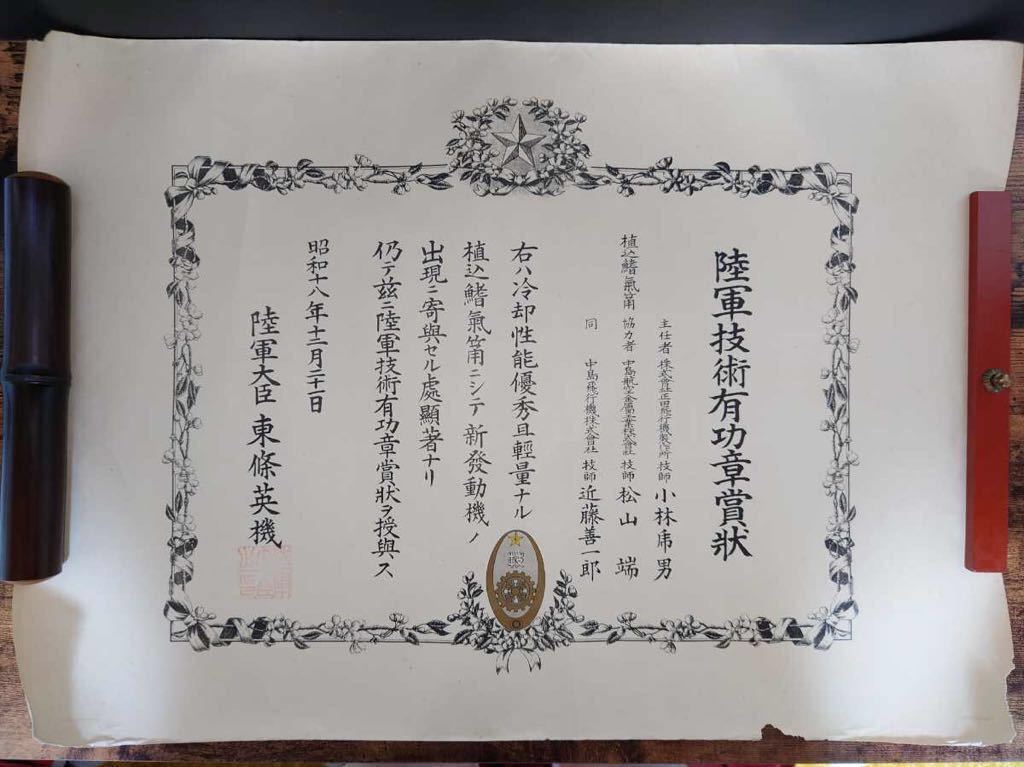 陸軍技術有功章賞狀
主任者 株式會社正田飛行機製作所 技師 小林虎男
植込鰭氣筩 協力者 中島航空金屬工業株式會社 技師 松山端
同 中島飛行機株式會社 技師 近藤善一郎
右ハ冷却性能優秀且輕量ナル
植込鰭氣筩ニシテ新發動機ノ
出現ニ寄與セル處顯著ナリ
仍テ茲ニ陸軍技術有功章賞狀ヲ授與ス
昭和十八年十二月二十一日
陸軍大臣 東條英機